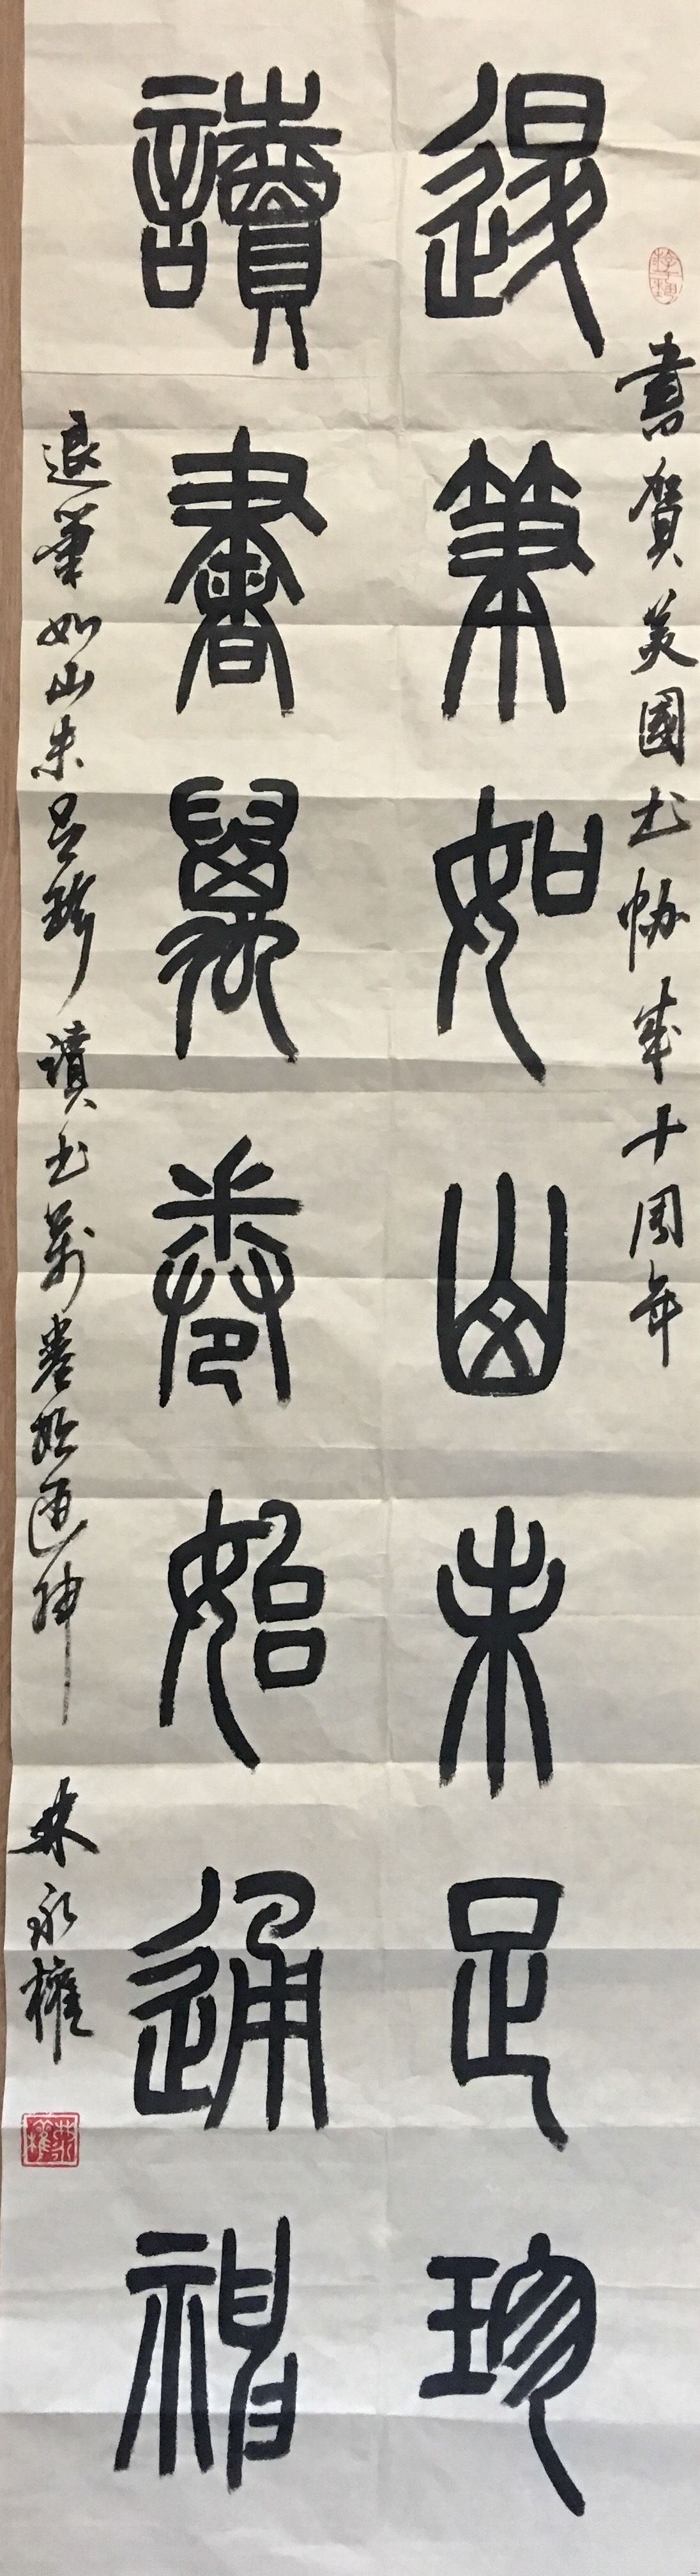 書賀美國书协成十周年
退筆如山未足珍
讀書萬卷始通神
退筆如山未足珍 讀书萬卷始通神
林永權